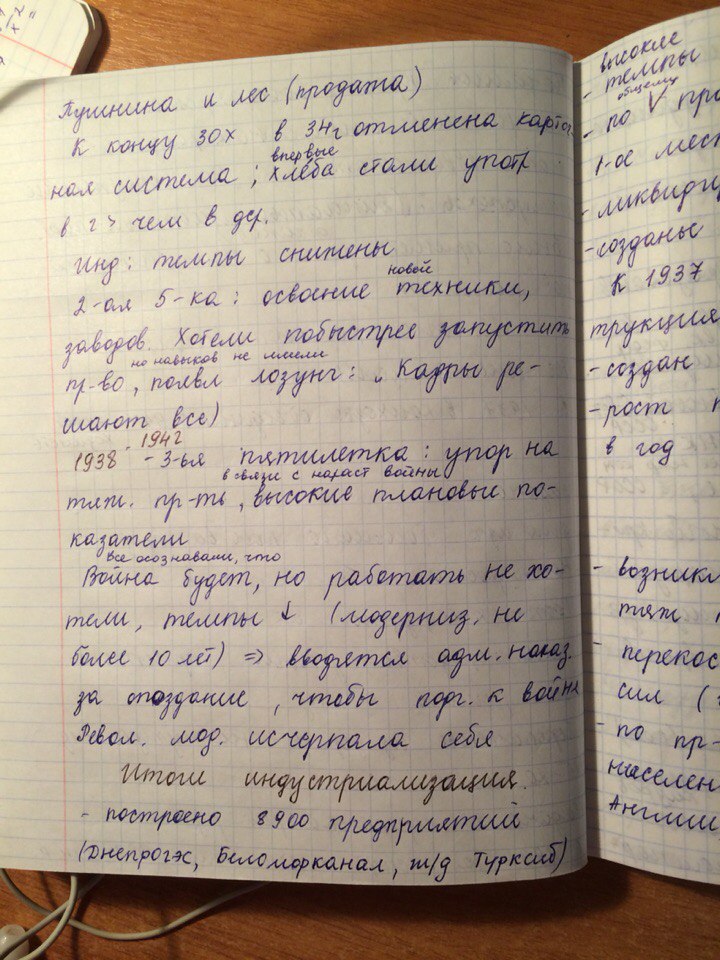 Пушнина и лес (продажа)
К концу 30х в 34г отменена карточ
ная система; впервые хлеба стали употр
в г > чем в дер.
Инд: темпы снижены
2-ая 5-ка: освоение новой техники,
заводов. Хотели побыстрее запустить
пр-во, но навыков не имели появл лозунг: "Кадры ре-
шают все)
1938 - 1942 - 3-ья пятилетка: упор на
тяж. пр-ть, в связи с нараст войны высокие плановые по-
казатели
Все осознавали, что
Война будет, но работать не хо-
тели, темпы ↓ (модерниз. не
более 10 лет) => вводятся адм. наказ.
за опоздание, чтобы подг. к войне
Револ. мод. исчерпала себя
Итоги индустриализация.
- построено 8900 предприятий
(Днепрогэс, Беломорканал, ж/д Турксиб)
высокие
- темпы
- по общему пр
1-ое мест
- ликвидиц
- созданы
К 1937
трукция
- создан
- рост
в год
- возникл
тяж
- перекос
сил (
- по пр-
населен
Англии